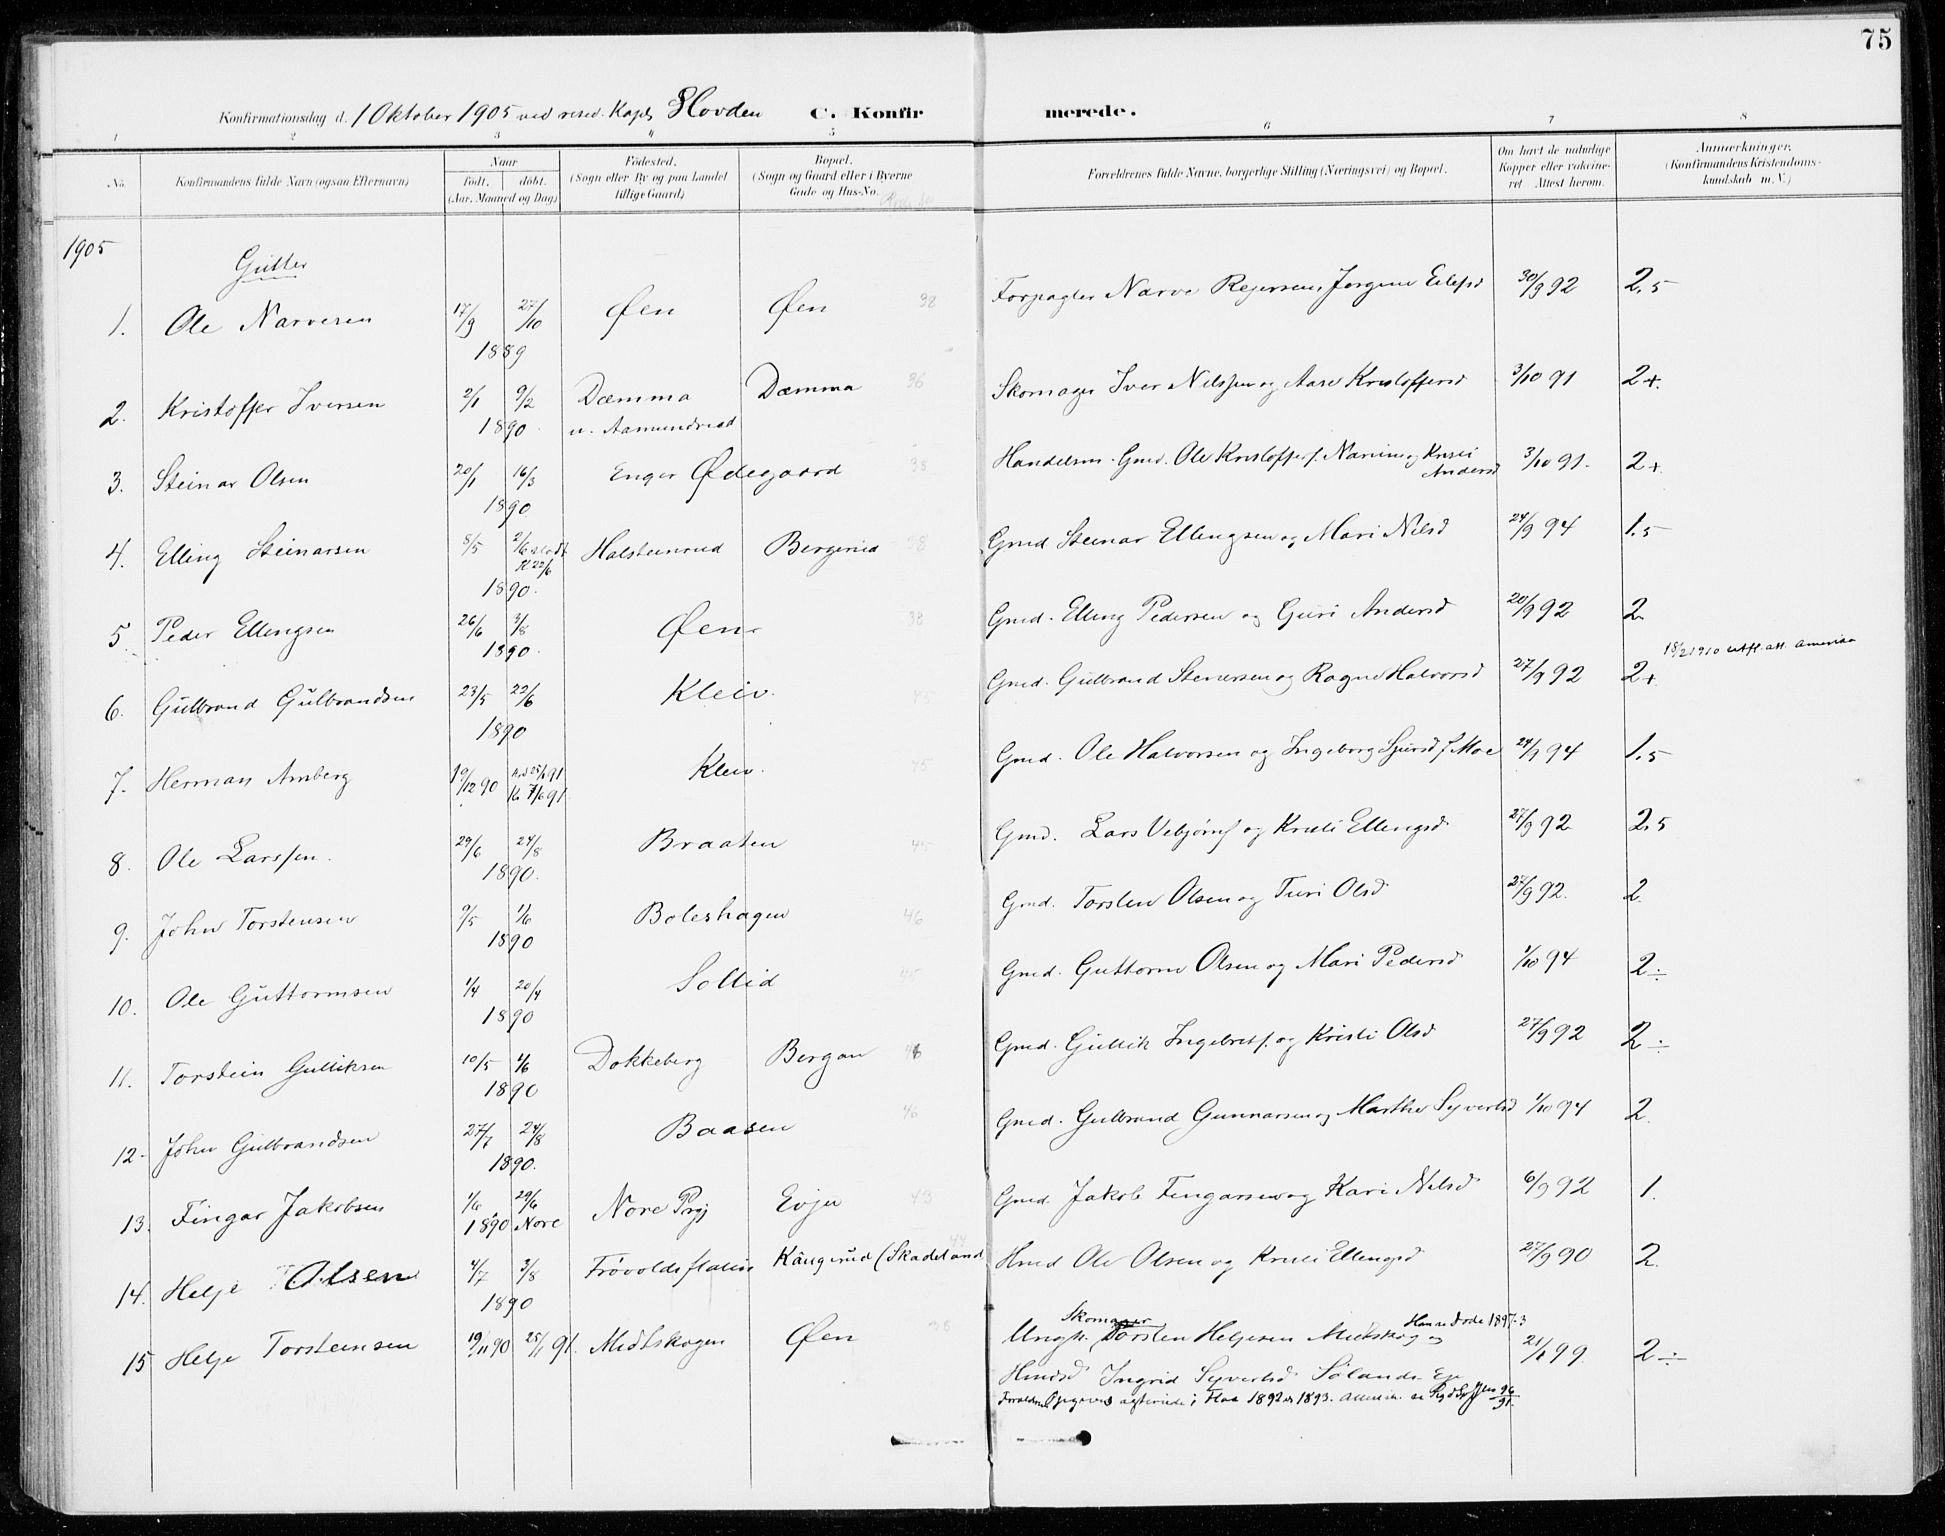 75
Konfirmationsdag d. 1 Oktober 1905 ved resid. Kapl. Hovden C. Konfirmerede.
1 2 3 4 5 6 7 8
No. Konfirmandens fulde Navn (ogsaa Efternavn) Naar födt. döbt. (Aar, Maaned og Dag) Födested. (Sogn eller By og paa Landet tillige Gaard) Bopæl. (Sogn og Gaard eller i Byerne Gade og Hus-No. Forældrenes fulde Navne, borgerlige Stilling (Næringsvei) og Bopæl. Om havt de naturlige Kopper eller vakcineret Attest herom. Anmærkninger, (Konfirmandens Kristendomskundskab m. V.)
1905
Gutter
1. Ole Narvesen 17/9 27/10 1889 Øen Øen 38 Forpagter Narve Rejersen, Jørgine Eilefsd 30/9 92 2.5
2. Kristoffer Iversen 2/1 9/2 1890 Dæmma u. Aamundrud Dæmma 36 Skomager Iver Nilssen og Aase Kristoffersd 3/10 91 2+
3. Steinar Olsen 20/1 16/3 1890 Enger Ødegaard 38 Handelsm. Gmd. Ole Kristoffers. Narum og Kristi Andersd 3/10 91. 2+
4. Elling Steinarsen 8/5 2/6 K 22/6 1890. Halsteinrud Bergerud 38 Gmd Steinar Ellingsen og Mari Nilsd 24/9 94 1.5
5 Peder Ellingsen 26/6 3/8 1890. Øen 38 Gmd. Elling Pedersen og Guri Andersd 20/9 92 2
18/2 1910 utfl. att. Amerika
6. Gulbrand Gulbrandsen 23/5 22/6 1890 Kleiv. Gmd. Gulbrand Stenersen og Ragne Halvorsd 27/9 92 2+
7. Herman Amberg 19/12 90 91 Kleiv. 45 Gmd. Ole Halvorsen og Ingeborg Sjursd f. Moe 24/9 94 1.5
8. Ole Larssen. 29/6 24/8 1890. Braaten 45 Gmd. Lars Vebjørns og Kristi Ellingsd. 27/9 92 2.5
9. John Torstensen 9/5 1/6 1890 Boleshagen 46 Gmd. Torsten Olsen og Turi Olsd 27/9 92. 2.
10. Ole Guttormsen 1/4 20/4 1890 Sollid 45 Gmd. Guttorm Olsen og Mari Pedersd 1/10 94 2÷
11. Torstein Gulliksen 10/5 1/6 1890 Dokkeberg Bergan 46 Gmd. Gullik Ingebrets. og Kristi Olsd 27/9 92 2÷
12. John Gulbrandsen 27/7 24/8 1890. Baasen 46 Gmd. Gulbrand Gunnarsen og Marthe Syvertsd 1/10 94 2.
13. Fingar Jakobsen 1/6 29/6 1890 Nore Nore Prgj Evju 43 Gmd. Jakob Fingarsen og Kari Nilsd 6/9 92 1.
14. Helje Olsen 4/7 3/8 1890 Frøvoldsflaten Kaugerud (Skadeland 44 Hmd Ole Olsen og Kristi Ellingsd 27/9 90 2.
15 Helje Torsteinsen 19/11 90 25/1 91. Midtskogen Øen 38 Skomager Ungk. Torsten Heljesen Midtskog og Han er døde 1897-3 21/1 99 2÷
Hmdsd Ingrid Syvertsd Sølands Eie
Forældrene i Flaa 1892 og 1893. 96/91.